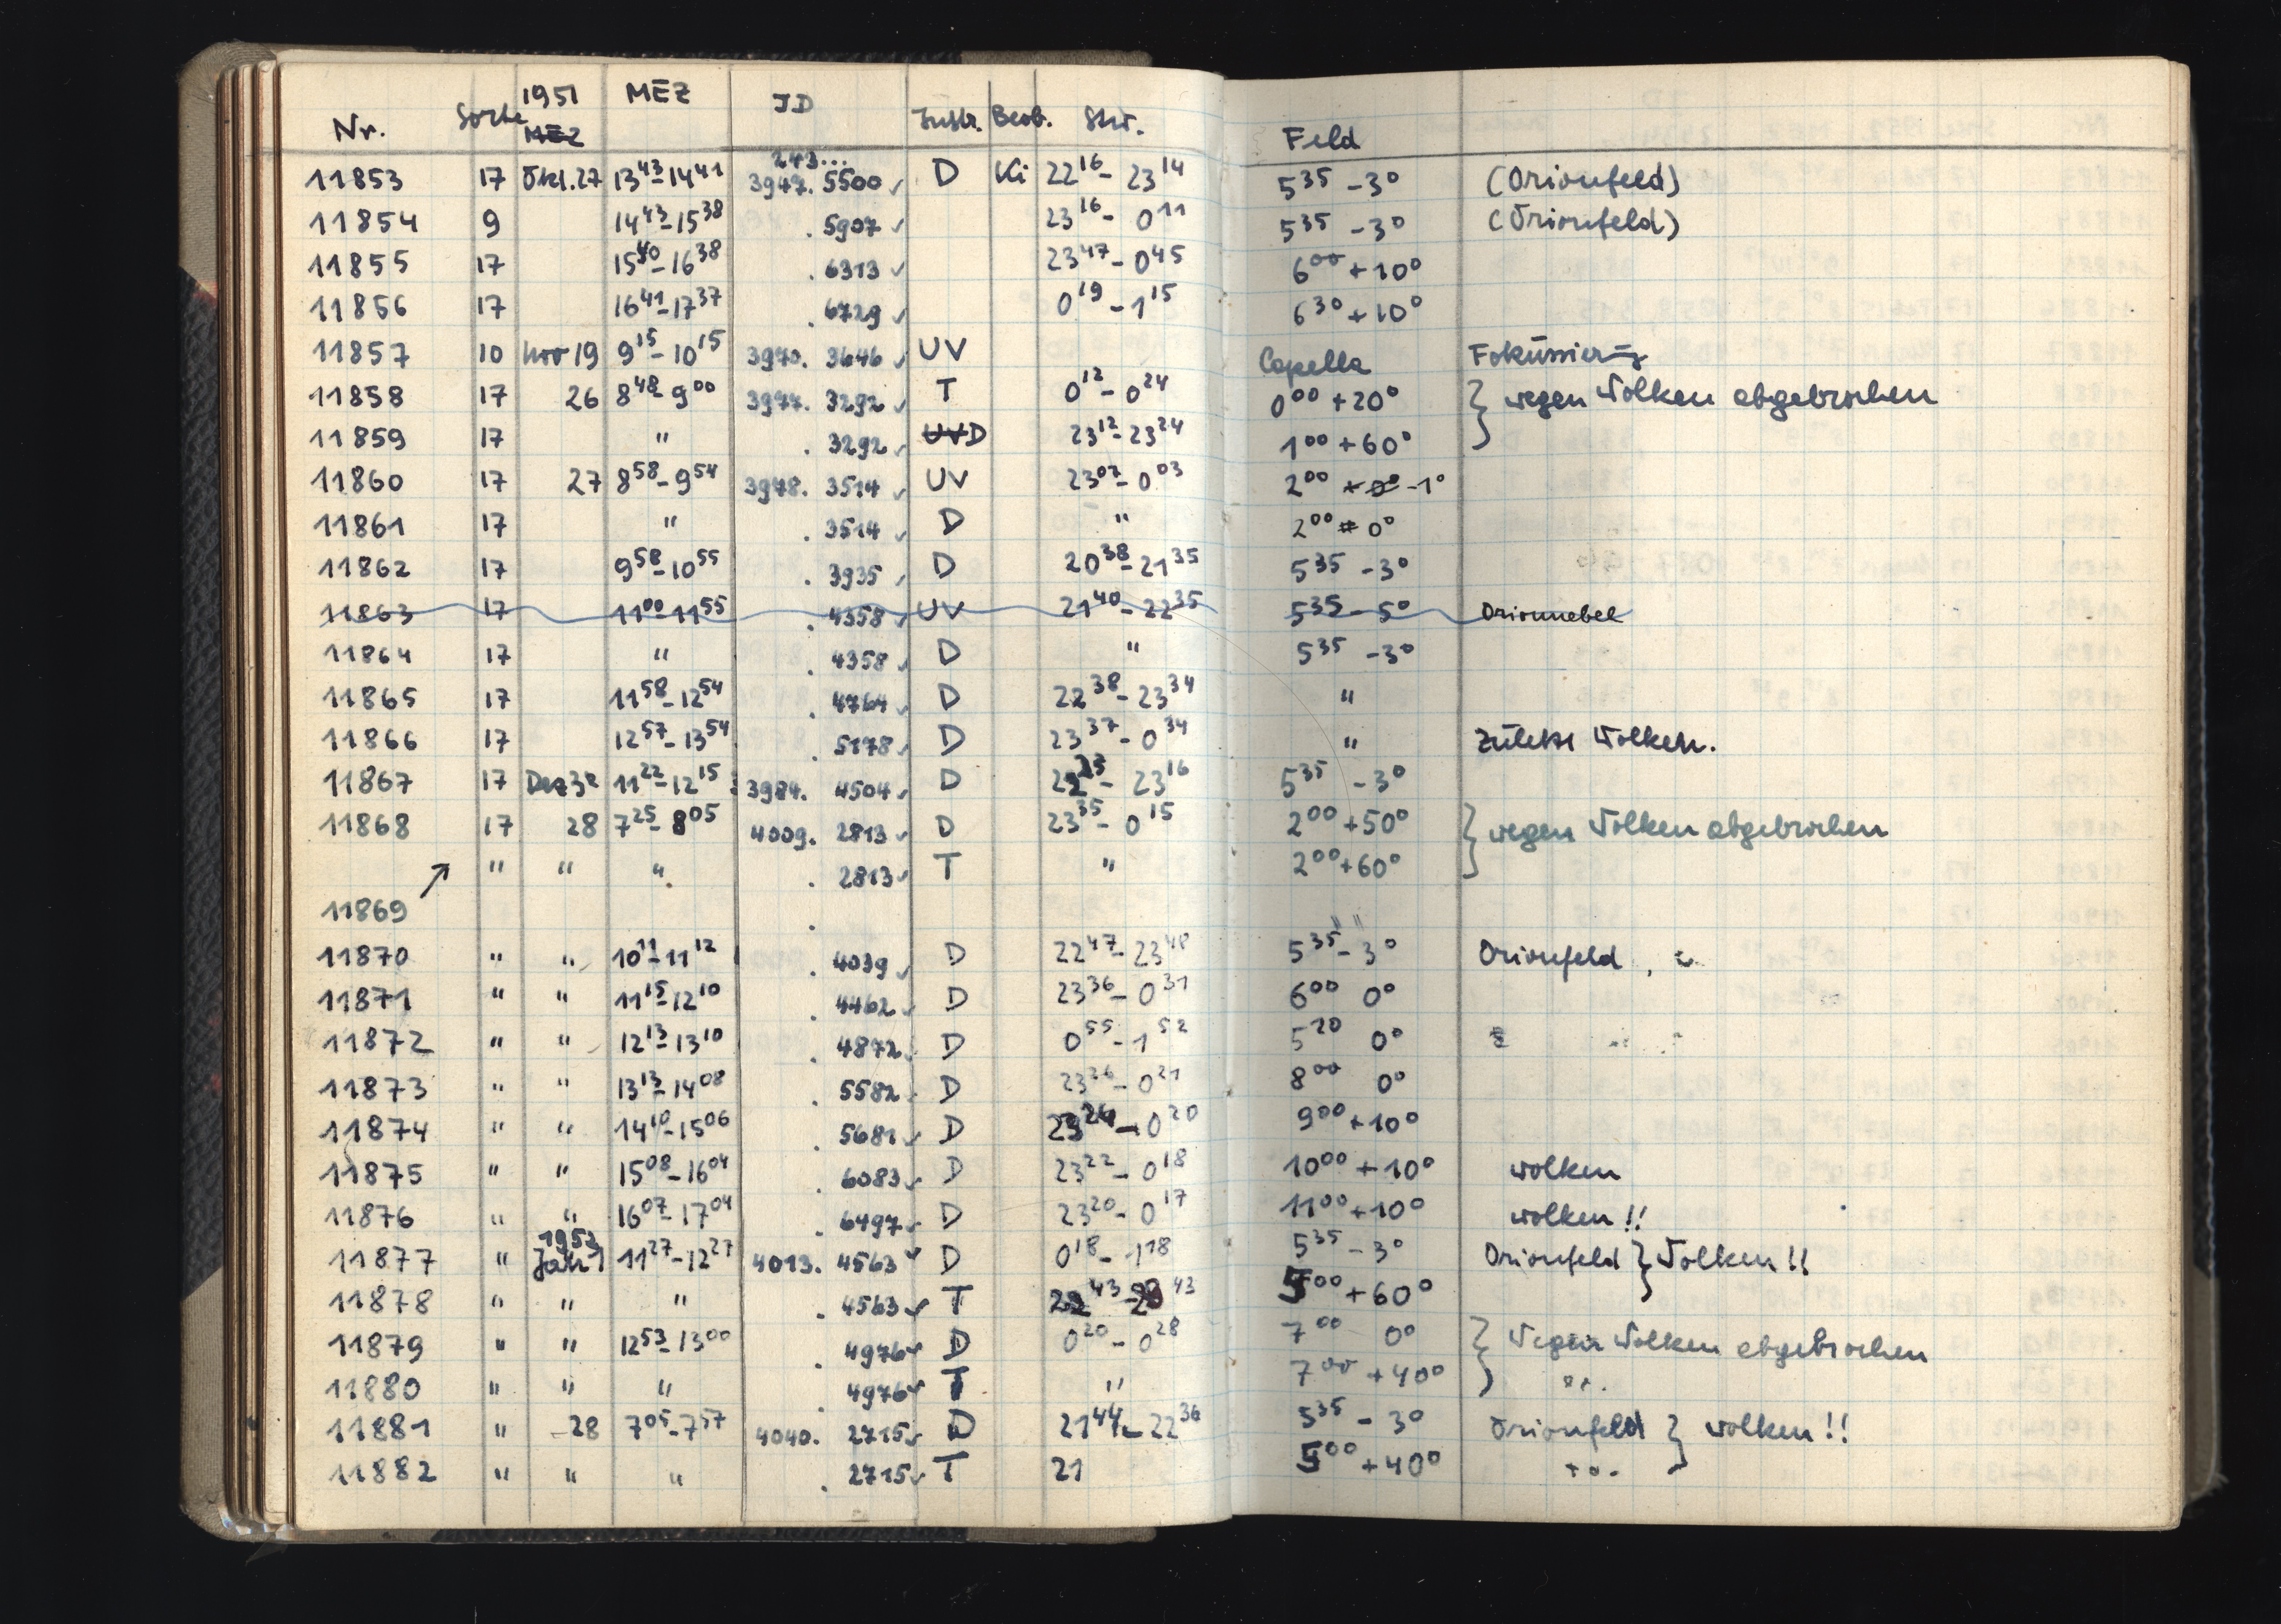 Nr. Sorte 1951 MEZ JD Instr. Beob. Stw. Feld
MEZ
243...
11853 17 Okt. 27 13⁴³-14⁴¹ 3947. 5500 ✓ D Ki 22¹⁶-23¹⁴ 5³⁵ -3° (Orionfeld)
11854 9 14⁴³-15³⁸ . 5907 ✓ 23¹⁶-0¹¹ 5³⁵ -3° (Orionfeld)
11855 17 15⁴⁰-16³⁸ . 6313 ✓ 23⁴⁷-0⁴⁵ 6⁰⁰ +10°
11856 17 16⁴¹-17³⁷ . 6729 ✓ 0¹⁹-1¹⁵ 6³⁰ +10°
11857 10 Nov 19 9¹⁵-10¹⁵ 3970. 3646 ✓ UV Capella Fokussierung
11858 17 26 8⁴⁸-9⁰⁰ 3977. 3292 ✓ T 0¹²-0²⁴ 0⁰⁰ +20° } wegen Wolken abgebrochen
11859 17 " . 3292 ✓ UV D 23¹²-23²⁴ 1⁰⁰ +60°
11860 17 27 8⁵⁸-9⁵⁴ 3978. 3514 ✓ UV 23⁰⁷-0⁰³ 2⁰⁰ +0° -1°
11861 17 " . 3514 ✓ D " 2⁰⁰ 0°
11862 17 9⁵⁸-10⁵⁵ . 3935 ✓ D 20³⁸-21³⁵ 5³⁵ -3°
11863 17 11⁰⁰-11⁵⁵ . 4358 ✓ UV 21⁴⁰-22³⁵ 5³⁵ -5° Orionnebel
11864 17 " . 4358 ✓ D " 5³⁵ -3°
11865 17 11⁵⁸-12⁵⁴ . 4764 ✓ D 22³⁸-23³⁴ "
11866 17 12⁵⁷-13⁵⁴ . 5178 ✓ D 23³⁷-0³⁴ " Zuletzt Wolken.
11867 17 Dez 3 11²²-12¹⁵ 3984. 4504 ✓ D 22²³-23¹⁶ 5³⁵ -3°
11868 17 28 7²⁵-8⁰⁵ 4009. 2813 ✓ D 23³⁵-0¹⁵ 2⁰⁰ +50° } wegen Wolken abgebrochen
↗ " " " . 2813 ✓ T " 2⁰⁰ +60°
11869 . " "
11870 " " 10¹¹-11¹² . 4039 ✓ D 22⁴⁷-23⁴⁸ 5³⁵ -3° Orionfeld
11871 " " 11¹⁵-12¹⁰ . 4462 ✓ D 23³⁶-0³¹ 6⁰⁰ 0°
11872 " " 12¹³-13¹⁰ . 4872 ✓ D 0⁵⁵-1⁵² 5²⁰ 0°
11873 " " 13¹³-14⁰⁸ . 5582 ✓ D 23²⁶-0²¹ 8⁰⁰ 0°
11874 " " 14¹⁰-15⁰⁶ . 5681 ✓ D 23²⁴-0²⁰ 9⁰⁰ +10°
11875 " " 15⁰⁸-16⁰⁴ . 6083 ✓ D 23²²-0¹⁸ 10⁰⁰ +10° Wolken
11876 " " 16⁰⁷-17⁰⁴ . 6497 ✓ D 23²⁰-0¹⁷ 11⁰⁰ +10° Wolken!!
1952
11877 " Jan 1 11²⁷-12²⁷ 4013. 4563 ✓ D 0¹⁸-1¹⁸ 5³⁵ -3° Orionfeld } Wolken!!
11878 " " " . 4563 ✓ T 22⁴³-23⁴³ 5⁰⁰ +60°
11879 " " 12⁵³-13⁰⁰ . 4976 ✓ D 0²⁰-0²⁸ 7⁰⁰ 0° } Wegen Wolken abgebrochen
11880 " " " . 4976 ✓ T " 7⁰⁰ +40°
11881 " 28 7⁰⁵-7⁵⁷ 4040. 2715 ✓ D 21⁴⁴-22³⁶ 5³⁵ -3° Orionfeld } Wolken!!
11882 " " " . 2715 ✓ T 21 5⁰⁰ +40°